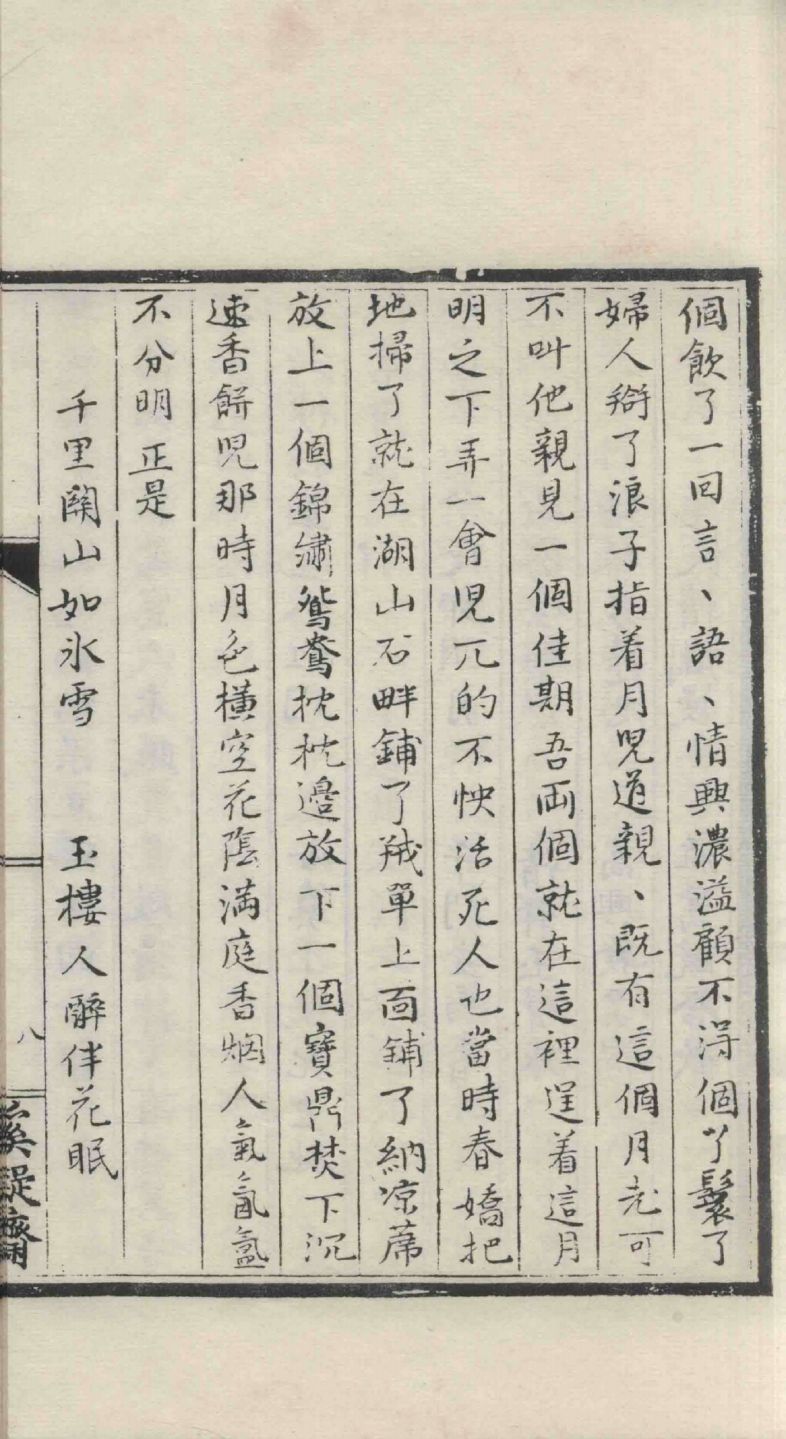 個飲了一回言、語、情興濃溢顧不淂個丫鬟了
婦人搿了浪子指着月児道親、既有這個月光可
不叫他親見一個佳期吾両個就在這裡逞着這月
明之下弄一會児兀的不怏活死人也當時春嬌把
地掃了就在湖山石畔鋪了羢單上面鋪了納凉蓆
放上一個錦繡鴛鴦枕枕邉放下一個寶鼎焚下沉
速香餅児那時月色橫空花隂滿庭香烟人氣氤氳
不分明正是
千里関山如氷雪　玉樓人醉伴花眠
八